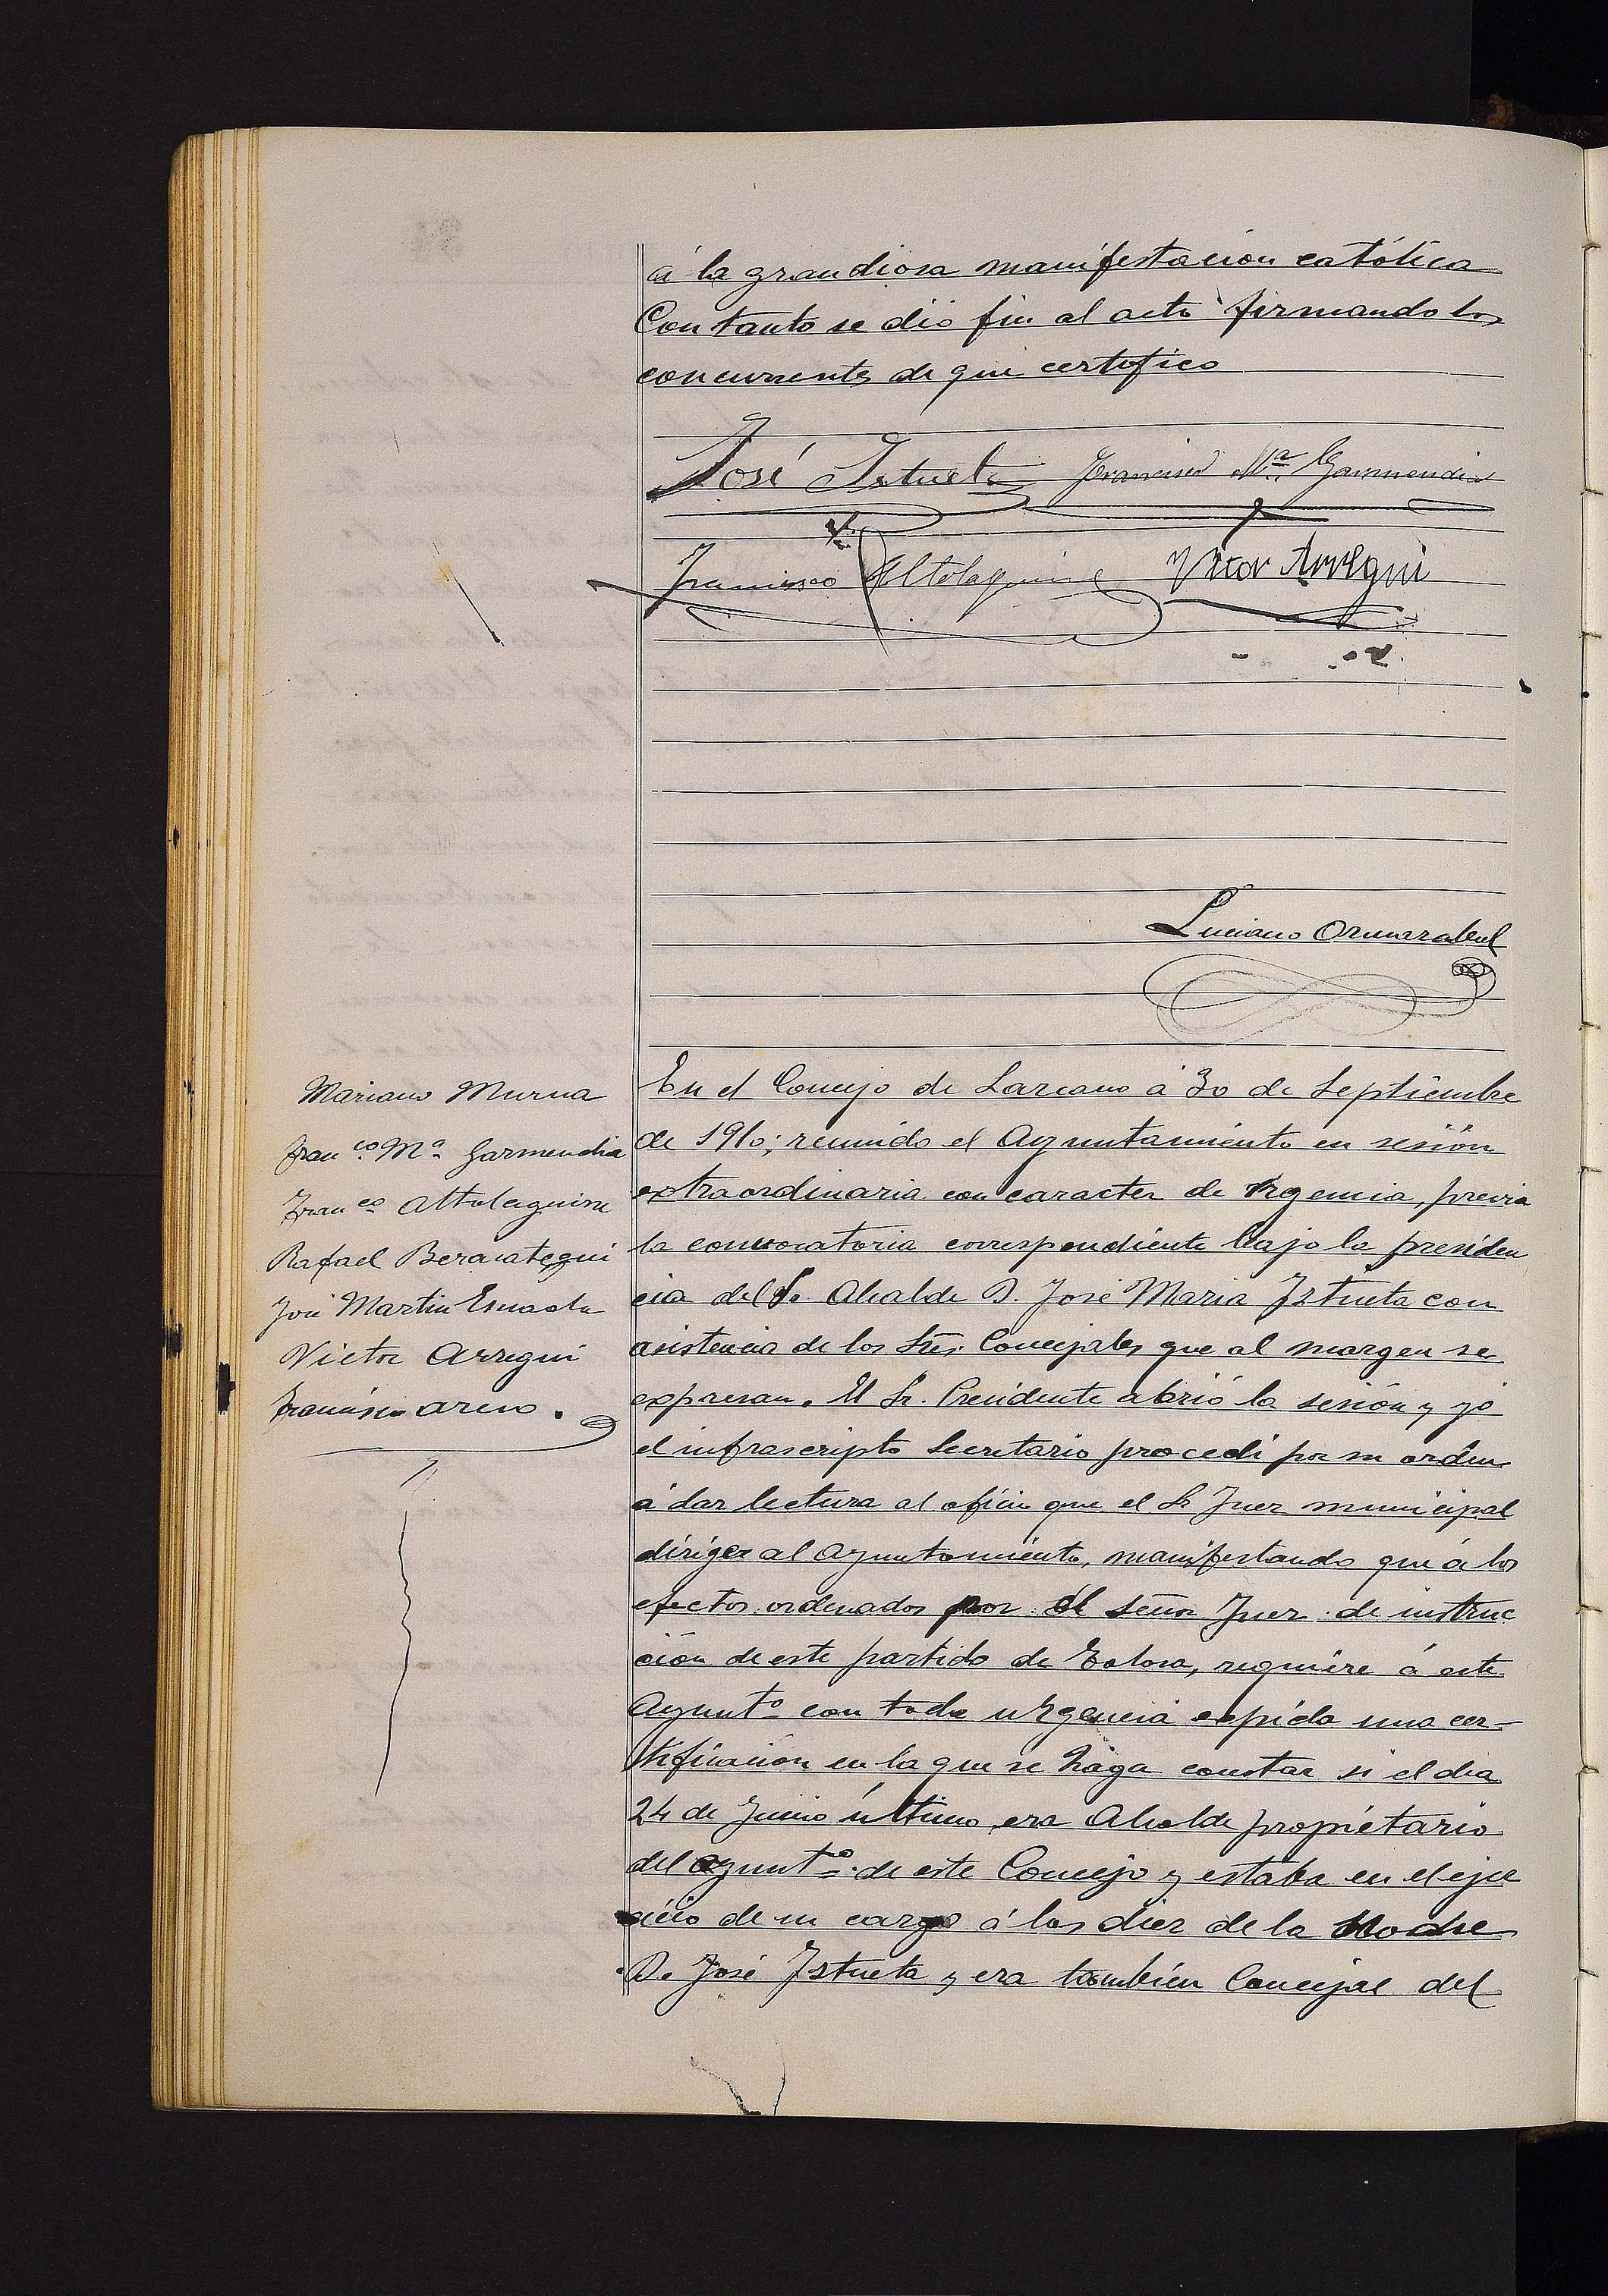 á la grandiosa manifestación católica
Con tanto se dió fin al acto firmando los
concurrentes de que certifico
José Iztueta Francisco Mª Garmendia
Francisco Altolaguirre Victor Arregui
Luciano Ormazabal
Mariano Murua
Franco. Mª Garmendia
Franco Altolaguirre
Rafael Beracategui
José Martin
Victor Arregui
Francisco
En el Concejo de Lazcano á 30 de Septiembre
de 1910; reunido el Ayuntamiento en sesión
extraordinaria con caracter de urgencia, previa
la convocatoria correspondiente bajo la presiden
cia del Sr. Alcalde D. José Maria Iztueta con
asistencia de los Sres. Concejales que al margen se
expresan. El Sr. Presidente abrió la sesión y yó
el infrascripto Secretario procedi por su orden
á dar lectura al oficio que el Sr Juez municipal
dirige al Ayuntamiento, manifestando que á los
efectos ordenados por el señor Juez de instruc
ción de este partido de Tolosa, requiere á este
Ayuntº con toda urgencia expida una cer-
tificación en la que se haga constar si el dia
24 de Junio último, era Alcalde propietario
del Ayuntº. de este Concejo y estaba en el ejer
cicio de su cargo á las diez de la noche
D. José Iztueta y era también Concejal del